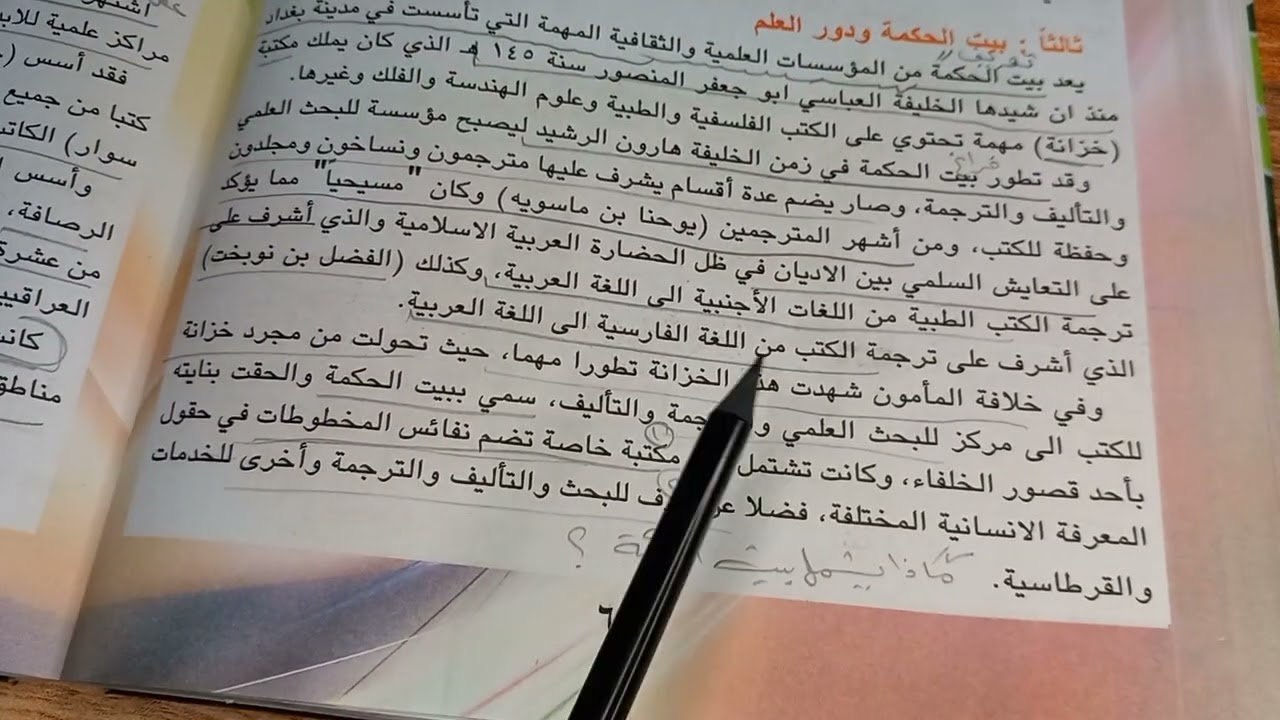 ثالثاً : بيت الحكمة ودور العلم
يعد بيت الحكمة من المؤسسات العلمية والثقافية المهمة التي تأسست في مدينة بغداد
منذ ان شيدها الخليفة العباسي ابو جعفر المنصور سنة ١٤٥ هـ الذي كان يملك مكتبة
(خزانة) مهمة تحتوي على الكتب الفلسفية والطبية وعلوم الهندسة والفلك وغيرها.
وقد تطور بيت الحكمة في زمن الخليفة هارون الرشيد ليصبح مؤسسة للبحث العلمي
والتأليف والترجمة، وصار يضم عدة أقسام يشرف عليها مترجمون ونساخون ومجلدون
وحفظة للكتب، ومن أشهر المترجمين (يوحنا بن ماسويه) وكان "مسيحياً" مما يؤكد
على التعايش السلمي بين الاديان في ظل الحضارة العربية الاسلامية والذي أشرف على
ترجمة الكتب الطبية من اللغات الأجنبية الى اللغة العربية، وكذلك (الفضل بن نوبخت)
الذي أشرف على ترجمة الكتب من اللغة الفارسية الى اللغة العربية.
وفي خلافة المأمون شهدت الخزانة تطورا مهما، حيث تحولت من مجرد خزانة
للكتب الى مركز للبحث العلمي والتأليف، سمي ببيت الحكمة والحقت بنايته
بأحد قصور الخلفاء، وكانت تشتمل مكتبة خاصة تضم نفائس المخطوطات في حقول
المعرفة الانسانية المختلفة، فضلا للبحث والتأليف والترجمة وأخرى للخدمات
والقرطاسية. ماذا يشمل بيت ؟
مراكز علمية
فقد أسس
كتبا من جميع
سوار)
وأسس
الرصافة،
من عشرة
مناطق